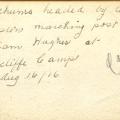 chums headed by
marching post
Sam Hughes at
cliffe Camp
Aug 16/16